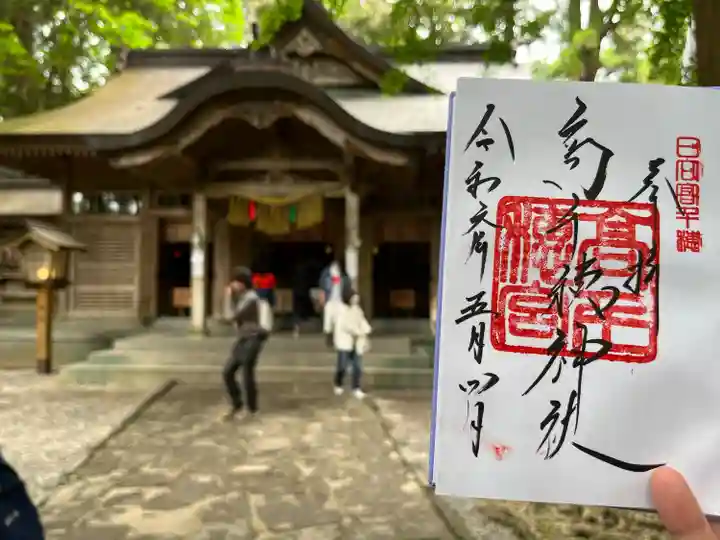 日向高千穂
奉拝
高千穂神社
高千穂宮
令和六年五月四日